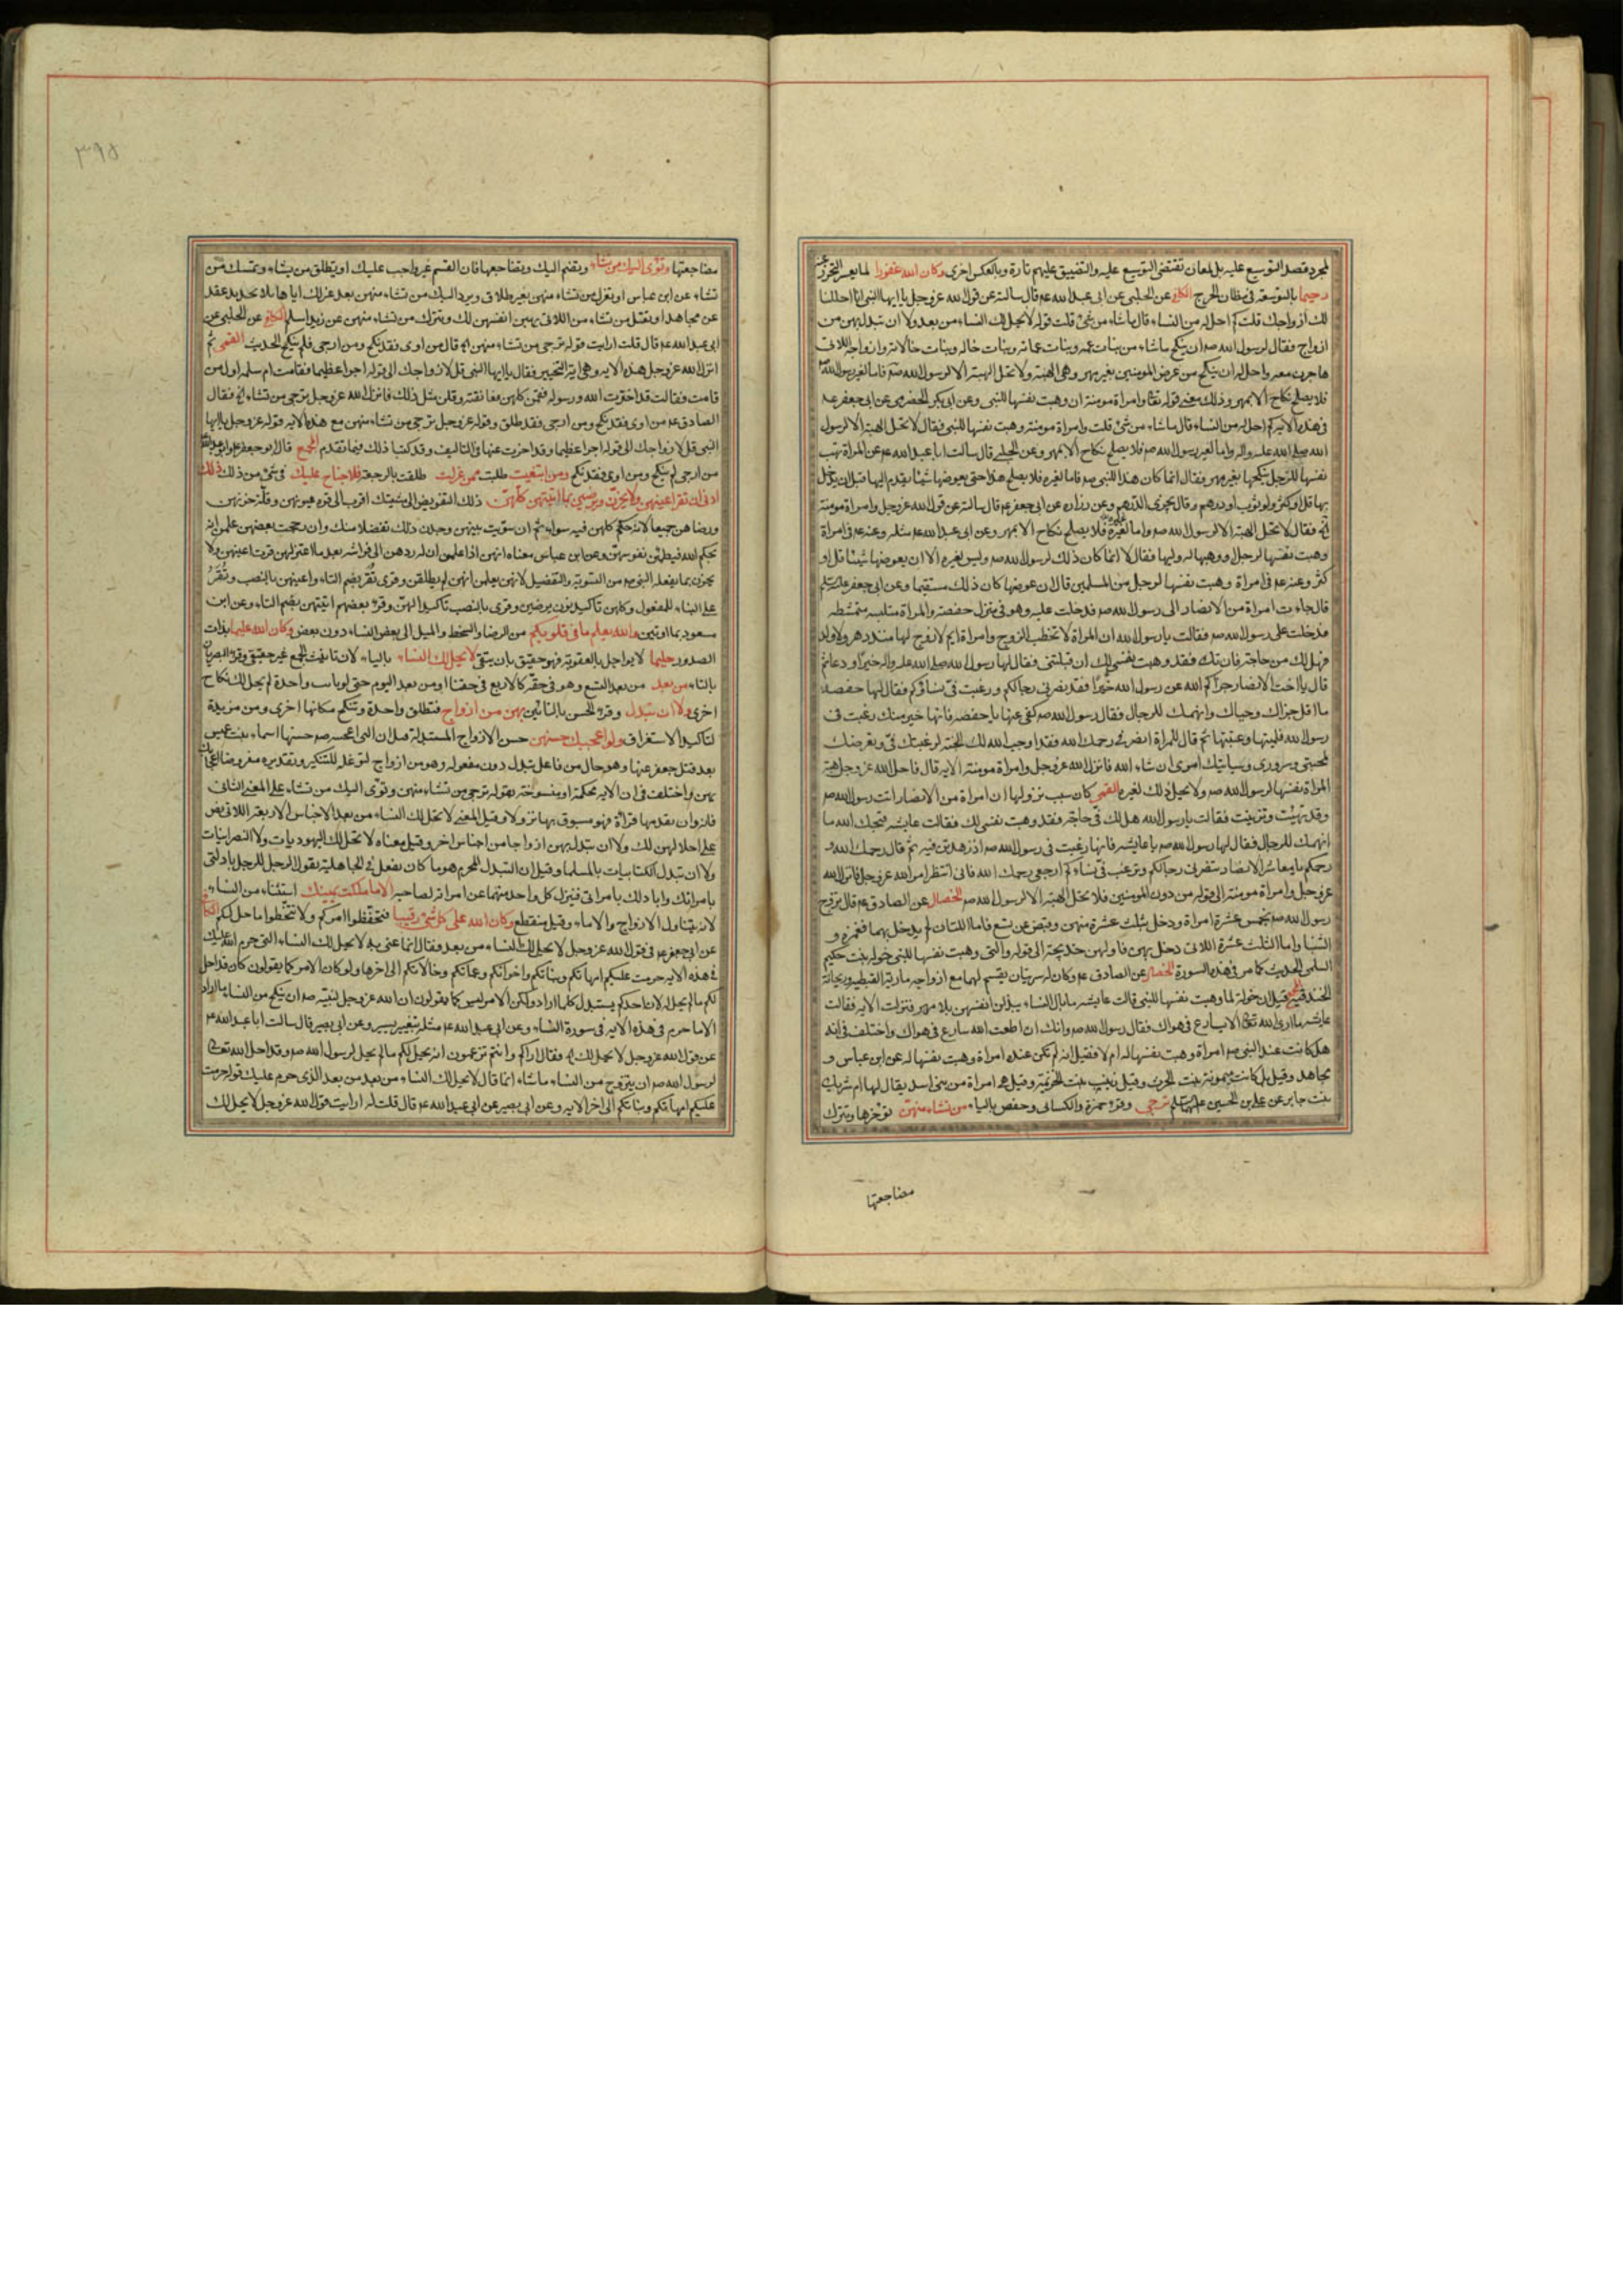 لمجرد قصد التوسيع عليه بل لمعان تقتضى التوسيع عليه والتضييق عليهم تارة وبالعكس اخرى وكان الله غفورا لما يعسر التحرز عنه
رحيما بالتوسعة فى مظان الحرج الكافى عن الحلبى عن ابى عبد الله عم قال سالته عن قول الله عز وجل يا ايها النبى انا احللنا
لك ازواجك قلت كم احل له من النساء قال ما شاء من شئ قلت قوله لا يحل لك النساء من بعد ولا ان تبدل بهن من
ازواج فقال لرسول الله صم ان ينكح ما شاء من بنات عمه وبنات عماته وبنات خاله وبنات خالاته وازواجه اللاتى
هاجرن معه واحل له ان ينكح من عرض المومنين بغير مهر وهى الهبة ولا تحل الهبة الا لرسول الله صم فاما لغير رسول الله
فلا يصلح نكاح الا بمهر وذلك معنى قوله تعا وامراة مومنة ان وهبت نفسها للنبى وعن ابى بكر الحضرمى عن ابى جعفر عم
فى هذه الاية كم احل له من النساء قال ما شاء من شئ قلت وامراة مومنة وهبت نفسها للنبى فقال لا تحل الهبة الا لرسول
الله صلى الله عليه واله واما لغير رسول الله صم فلا يصلح نكاح الا بمهر وعن الحلبى قال سالت ابا عبد الله عم عن المراة تهب
نفسها للرجل ينكحها بغير مهر فقال انما كان هذا للنبى صم فاما لغيره فلا يصلح هذا حتى يعوضها شيئا يقدم اليها قبل ان يدخل
بها قل او كثر ولو ثوب او درهم وقال يجزى الدرهم وعن زراره عن ابى جعفر عم قال سالته عن قول الله عز وجل وامراة مومنة
فقال لا تحل الهبة الا لرسول الله صم واما لغيره فلا يصلح نكاح الا بمهر وعن ابى عبد الله عم مثله وعنه عم فى امراة
وهبت نفسها لرجل او وهبها له وليها فقال لا انما كان ذلك لرسول الله صم وليس لغيره الا ان يعوضها شيئا قل او
كثر وعنه عم فى امراة وهبت نفسها لرجل من المسلمين قال ان عوضها كان ذلك مستقيما وعن ابى جعفر
قال جاءت امراة من الانصار الى رسول الله صم فدخلت عليه وهو فى منزل حفصة والمراة متلبسه متمشطه
فدخلت على رسول الله صم فقالت يا رسول الله ان المراة لا تخطب الزوج وامراة ايم لا زوج لها منذ دهر ولا ولد
فهل لك من حاجة فان تك فقد وهبت نفسى لك ان قبلتنى فقال لها رسول الله صلى الله عليه واله خيرا ودعا ثم
قال يا اخت الانصار جزاكم الله عن رسول الله خيرا فقد نصرنى رجالكم ورغبت فى نساؤكم فقال لها حفصه
ما اقل حياءك وانهمك للرجال فقال رسول الله صم كفى عنها يا حفصه فانها خير منك رغبت فى
رسول الله فلمتها وعبتها ثم قال للمراة انصرفى رحمك الله فقد اوجب الله لك الجنة لرغبتك فى وتعرضك
لمحبتى وسرورى وسياتيك امرى ان شاء الله فانزل الله عز وجل وامراة مومنة الاية قال فاحل الله عز وجل هبة
المراة نفسها لرسول الله صم ولا يحل ذلك لغيره القمى كان سبب نزولها ان امراة من الانصار اتت رسول الله صم
وقد تهيئت وتزينت فقالت يا رسول الله هل لك فى حاجة فقد وهبت نفسى لك فقالت عايشه قبحك الله ما
انهمك للرجال فقال لها رسول الله صم يا عايشه فانها رغبت فى رسول الله صم اذ زهدتن فيه ثم قال رحمك الله و
رحمكم يا معاشر الانصار تنصرنى رجالكم وترغب فى نساءكم ارجعى رحمك الله فانى انتظر امر الله عز وجل فانزل الله
عز وجل وامراة مومنة الى قوله من دون المومنين فلا تحل الهبة الا لرسول الله صم الخصال عن الصادق عم قال تزوج
رسول الله صم بخمس عشرة امراة ودخل بثلث عشرة منهن وقبض عن تسع فاما اللتان لم يدخل بهما فعمرة و
الشنبا واما الثلث عشرة اللاتى دخل بهن فاولهن خديجة الى قوله والتى وهبت نفسها للنبى خوله بنت حكيم
السلمى الحديث كما مر فى هذه السورة الخصال عن الصادق عم وكان له سريتان يقسم لهما مع ازواجه مارية القبطيه وريحانة
الخندفية المجمع قيل ان خولة لما وهبت نفسها للنبى قالت عايشه ما بال النساء يبذلن انفسهن بلا مهر فنزلت الاية فقالت
عايشه ما ارى الله تعالى الا يسارع فى هواك فقال رسول الله صم وانك ان اطعت الله سارع فى هواك واختلف فى انه
هل كانت عند النبى صم امراة وهبت نفسها له ام لا فقيل انه لم تكن عنده امراة وهبت نفسها له عن ابن عباس و
مجاهد وقيل بل كانت ميمونة بنت الحرث وقيل زينب بنت الخزيمة وقيل هى امراة من بنى اسد يقال لها ام شريك
بنت جابر عن على بن الحسين ترجى وقرء حمزة والكسائى وحفص بالياء من تشاء منهن تؤخرها وتترك
مضاجعتها
٣٩٥
مضاجعتها وتؤى اليك من تشاء وتضم اليك وتضاجعها فان القسم غير واجب عليك او تطلق من تشاء وتمسك من
تشاء عن ابن عباس او تعزل من تشاء منهن بغير طلاق وترد اليك من تشاء منهن بعد عزلك اياها بلا تجديد عقد
عن مجاهد او تقبل من تشاء من اللاتى يهبن انفسهن لك وتترك من تشاء منهن عن زيد اسلم الكافى عن الحلبى عن
ابى عبد الله عم قال قلت ارايت قوله ترجى من تشاء منهن قال من اوى فقد نكح ومن ارجى فلم ينكح الحديث القمى ثم
انزل الله عز وجل هذه الاية وهى اية التخيير فقال يا ايها النبى قل لازواجك الى قوله اجرا عظيما فقامت ام سلمه اول من
قامت فقالت قد اخترت الله ورسوله فقمن كلهن فعانقنه وقلن مثل ذلك فانزل الله عز وجل ترجى من تشاء فقال
الصادق عم من اوى فقد نكح ومن ارجى فقد طلق وقوله عز وجل ترجى من تشاء منهن مع هذه الاية قوله عز وجل يا ايها
النبى قل لازواجك الى قوله اجرا عظيما وقد اخرت عنها فى التاليف وقد كتبنا ذلك فيما تقدم المجمع قال ابو جعفر وابو عبد الله
من ارجى لم ينكح ومن اوى فقد نكح ومن ابتغيت طلبت ممن عزلت طلقت بالرجعة فلا جناح عليك فى شئ من ذلك ذلك
ادنى ان تقر اعينهن ولا يحزن ويرضين بما اتيتهن كلهن ذلك التفويض الى مشيتك اقرب الى قره عيونهن وقلة حزنهن
ورضاهن جميعا لانه حكم كلهن فيه سواء ثم ان سويت بينهن وجدن ذلك تفضلا منك وان رجحت بعضهن علمن انه
بحكم الله فيطمئن نفوسهن وعن ابن عباس معناه انهن اذا علمن ان له ردهن الى فراشه بعد ما اعتزلهن قرت اعينهن ولا
يحزن بما يفعله النبى صم من التسوية والتفضيل لانهن يعلمن انهن لم يطلقن وقرى تقر بضم التاء واعينهن بالنصب وتقر
على البناء للمفعول وكلهن تاكيد نون يرضين وقرى بالنصب تاكيدا لهن وقرء بعضهم اتيتهن بضم التاء وعن ابن
مسعود بما اوتين والله يعلم ما فى قلوبكم من الرضا والسخط والميل الى بعض النساء دون بعض وكان الله عليما بذات
الصدور حليما لا يعاجل بالعقوبة فهو حقيق بان يتقى لا يحل لك النساء بالياء لان تانيث الجمع غير حقيقى وقرء البصريان
بالتاء من بعد من بعد التسع وهو فى حقه كالاربع فى حقنا او من بعد اليوم حتى لو ماتت واحدة لم يحل لك نكاح
اخرى ولا ان تبدل وقرء الحسن بالتائين بهن من ازواج فتطلق واحدة وتنكح مكانها اخرى ومن مزيدة
لتاكيد الاستغراق ولو اعجبك حسنهن حسن الازواج المستبدلة قيل ان التى اعجبه صم حسنها اسماء بنت عميس
بعد قتل جعفر عنها وهو حال من فاعل تبدل دون مفعوله وهو من ازواج لتوغله للتنكير وتقديره مفروضا اعجابك
بهن واختلف فى ان الاية محكمة او منسوخة بقوله ترجى من تشاء منهن وتؤى اليك من تشاء على المعنى الثانى
فانه وان تقدمها قراءة فهو مسبوق بها نزولا وقيل المعنى لا تحل لك النساء من بعد الاجناس الاربعة اللاتى نص
على احلالهن لك ولا ان تبدل بهن ازواجا من اجناس اخر وقيل معناه لا تحل لك اليهوديات ولا النصرانيات
ولا ان تبدل الكتابيات بالمسلمات وقيل ان التبدل المحرم هو ما كان يفعل فى الجاهلية يقول الرجل للرجل بادلنى
بامراتك وابادلك بامراتى فينزل كل واحد منهما عن امراته لصاحبه الا ما ملكت يمينك استثناء من النساء
لانه يتناول الازواج والاماء وقيل منقطع وكان الله على كل شئ رقيبا فتحفظوا امركم ولا تتخطوا ما حل لكم الكافى
عن ابى جعفر عم فى قول الله عز وجل لا يحل لك النساء من بعد فقال انما عنى به لا يحل لك النساء التى حرم الله عليك
فى هذه الاية حرمت عليكم امهاتكم وبناتكم واخواتكم وعماتكم وخالاتكم الى اخرها ولو كان الامر كما يقولون كان قد احل
لكم ما لم يحل له لان احدكم يستبدل كلما اراد ولكن الامر ليس كما يقولون ان الله عز وجل لنبيه صم ان ينكح من النساء ما اراد
الا ما حرم فى هذه الاية فى سورة النساء وعن ابى عبد الله عم مثله بتغيير يسير وعن ابى بصير قال سالت ابا عبد الله عم
عن قول الله عز وجل لا يحل لك فقال اراكم وانتم تزعمون انه يحل لكم ما لم يحل لرسول الله صم وقد احل الله تعالى
لرسول الله صم ان يتزوج من النساء ما شاء انما قال لا يحل لك النساء من بعد من بعد الذى حرم عليك قوله حرمت
عليكم امهاتكم وبناتكم الى اخر الاية وعن ابى بصير عن ابى عبد الله عم قال قلت له ارايت قول الله عز وجل لا يحل لك